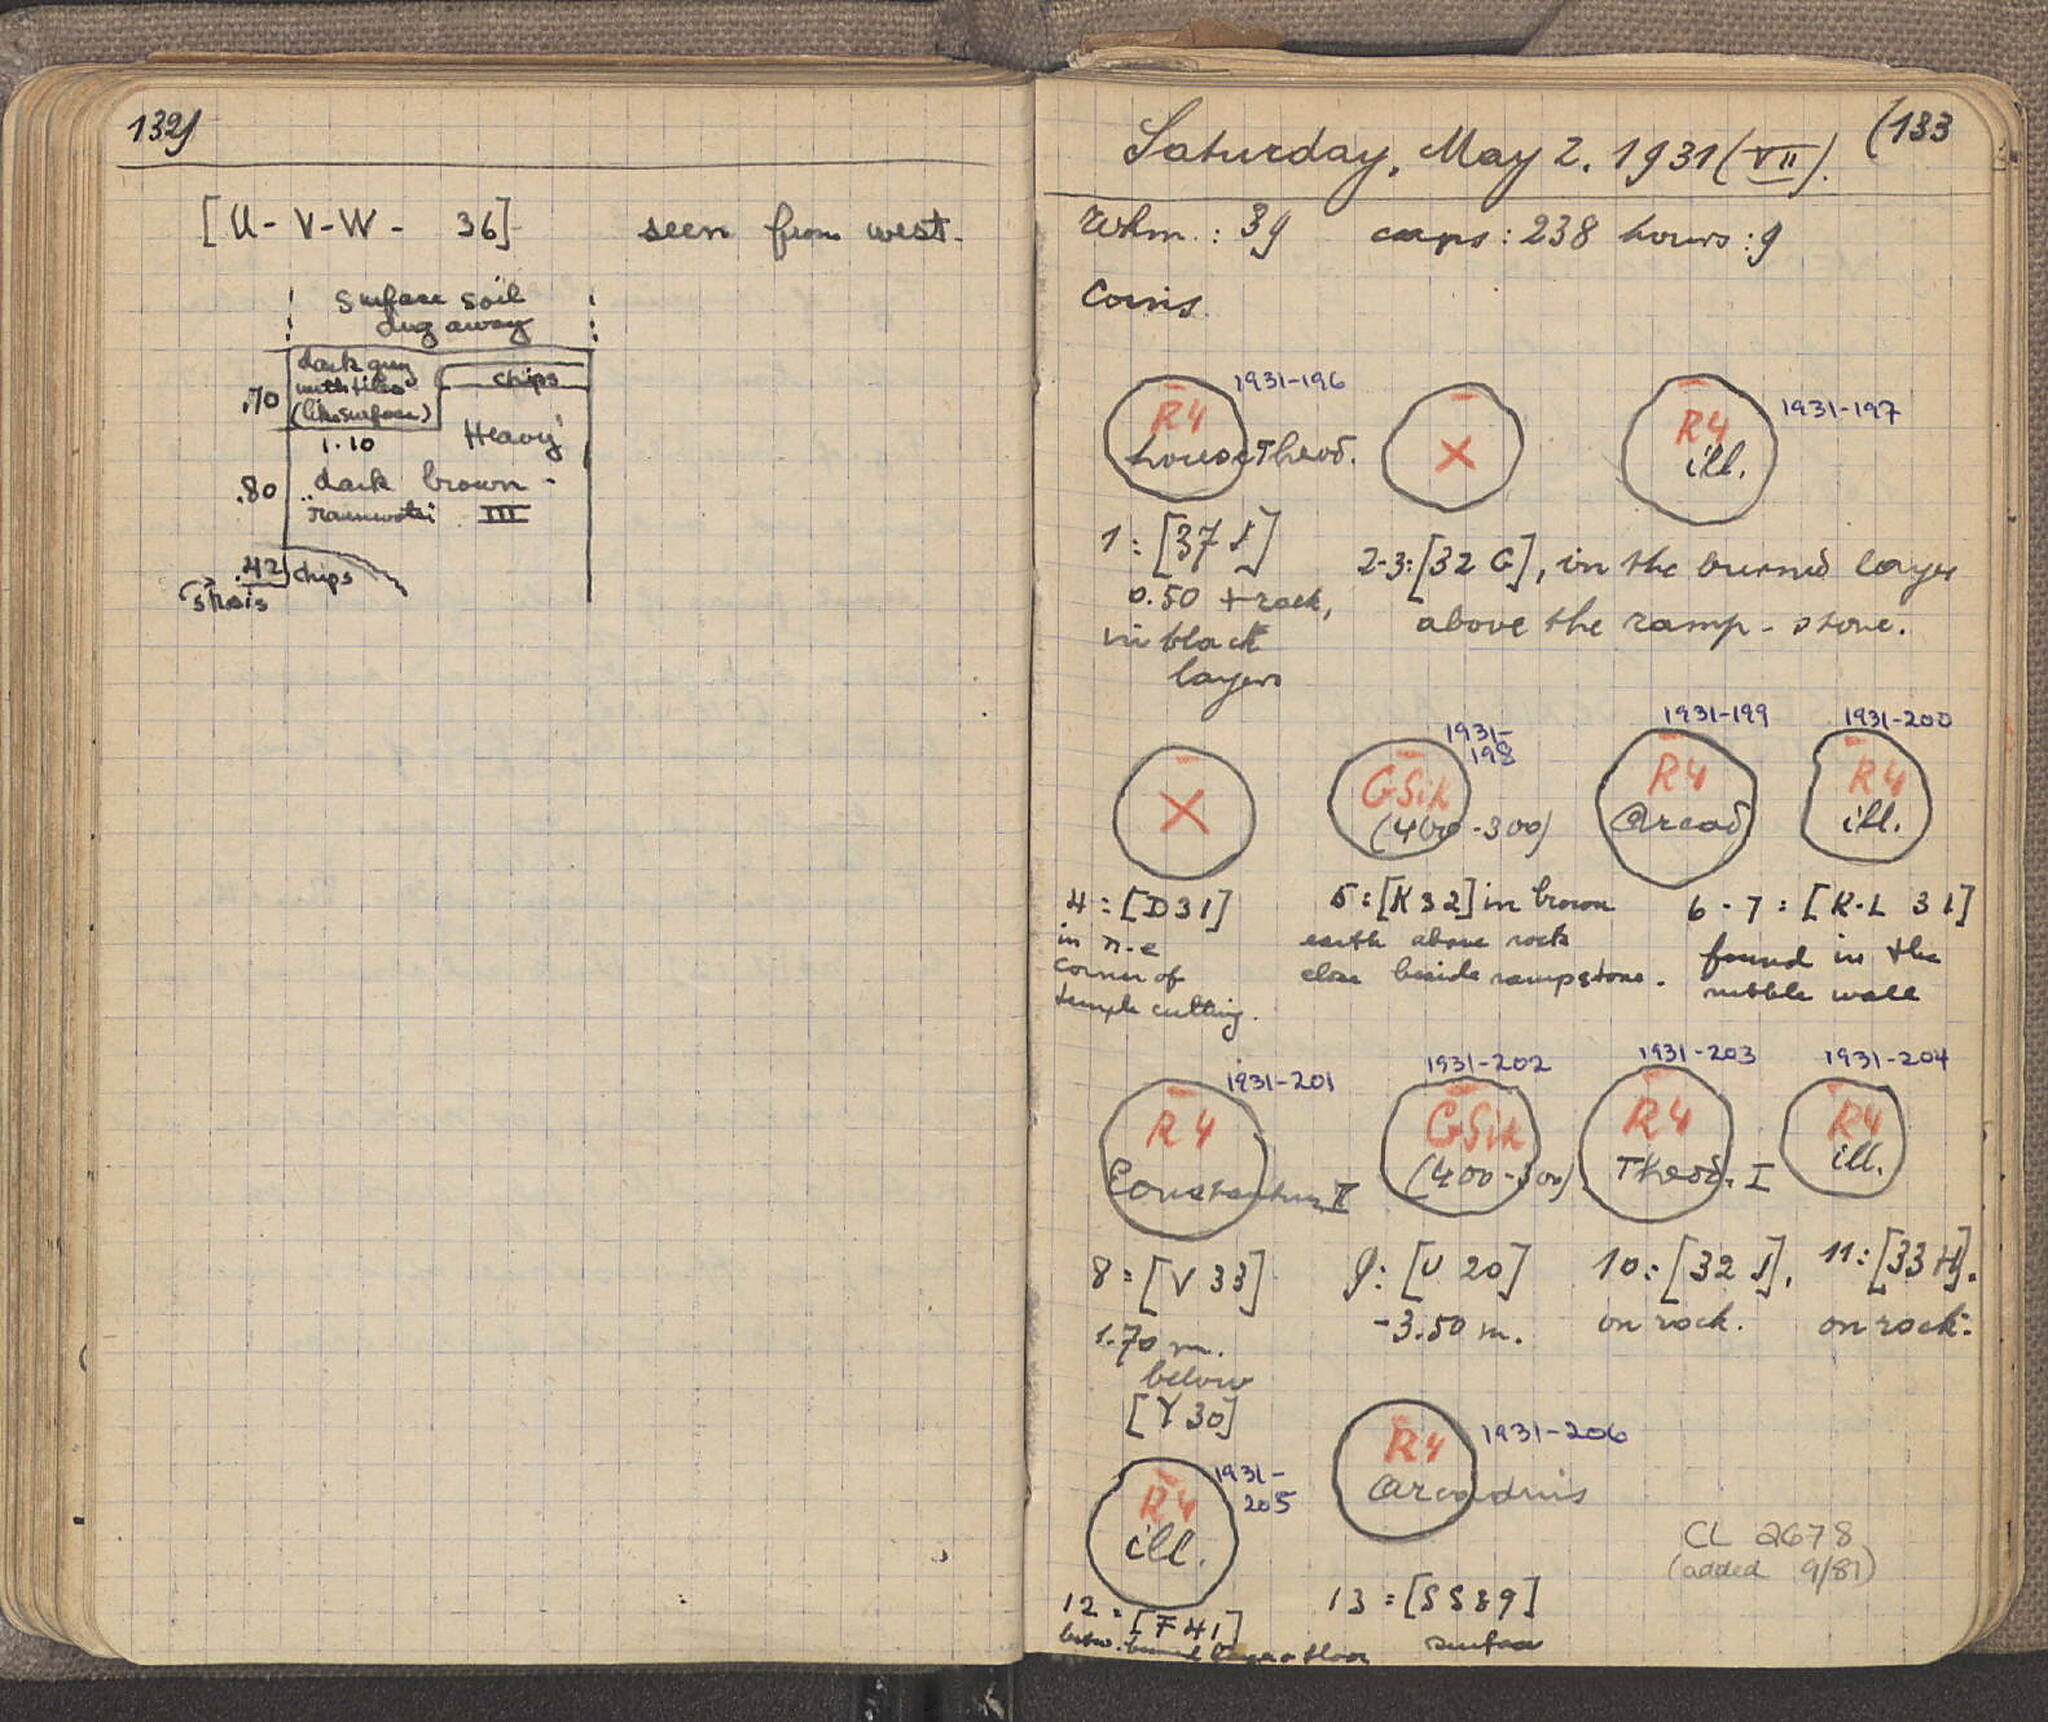 132)
[U - V - W - 36] seen from west.
Surface soil
dug away
dark grey
with tiles
(like surface)
chips
.70
1.10
Heavy
.80
dark brown -
III
.42
chips
(133
Saturday, May 2. 1931 (VII).
wkm.: 39 carps: 238 hours: 9
Coins
1931-196
R4
house Theod.
X
1931-197
R4
ill.
1: [37 J]
0.50 + rock,
in black
layers
2-3: [32 G], in the burned layer
above the ramp-stone.
X
1931-
198
GSik
(400-300)
1931-199
R4
Arcad
1931-200
R4
ill.
4: [D31]
in n-e
corner of
temple cutting.
5: [K32] in brown
earth above rock
close beside rampstone.
6-7: [K-L 31]
found in the
rubble wall
1931-201
R4
Constantius II
1931-202
GSik
(400-300)
1931-203
R4
Theod. I
1931-204
R4
ill.
8: [V 33]
1.70 m.
below
[Y 30]
9: [U 20]
-3.50 m.
10: [32 J],
on rock.
11: [33 H].
on rock.
1931-
205
R4
ill.
1931-206
R4
Arcadius
12: [F 41]
betw. burned layer + floor
13: [SS 89]
surface
CL 2678
(added 9/81)